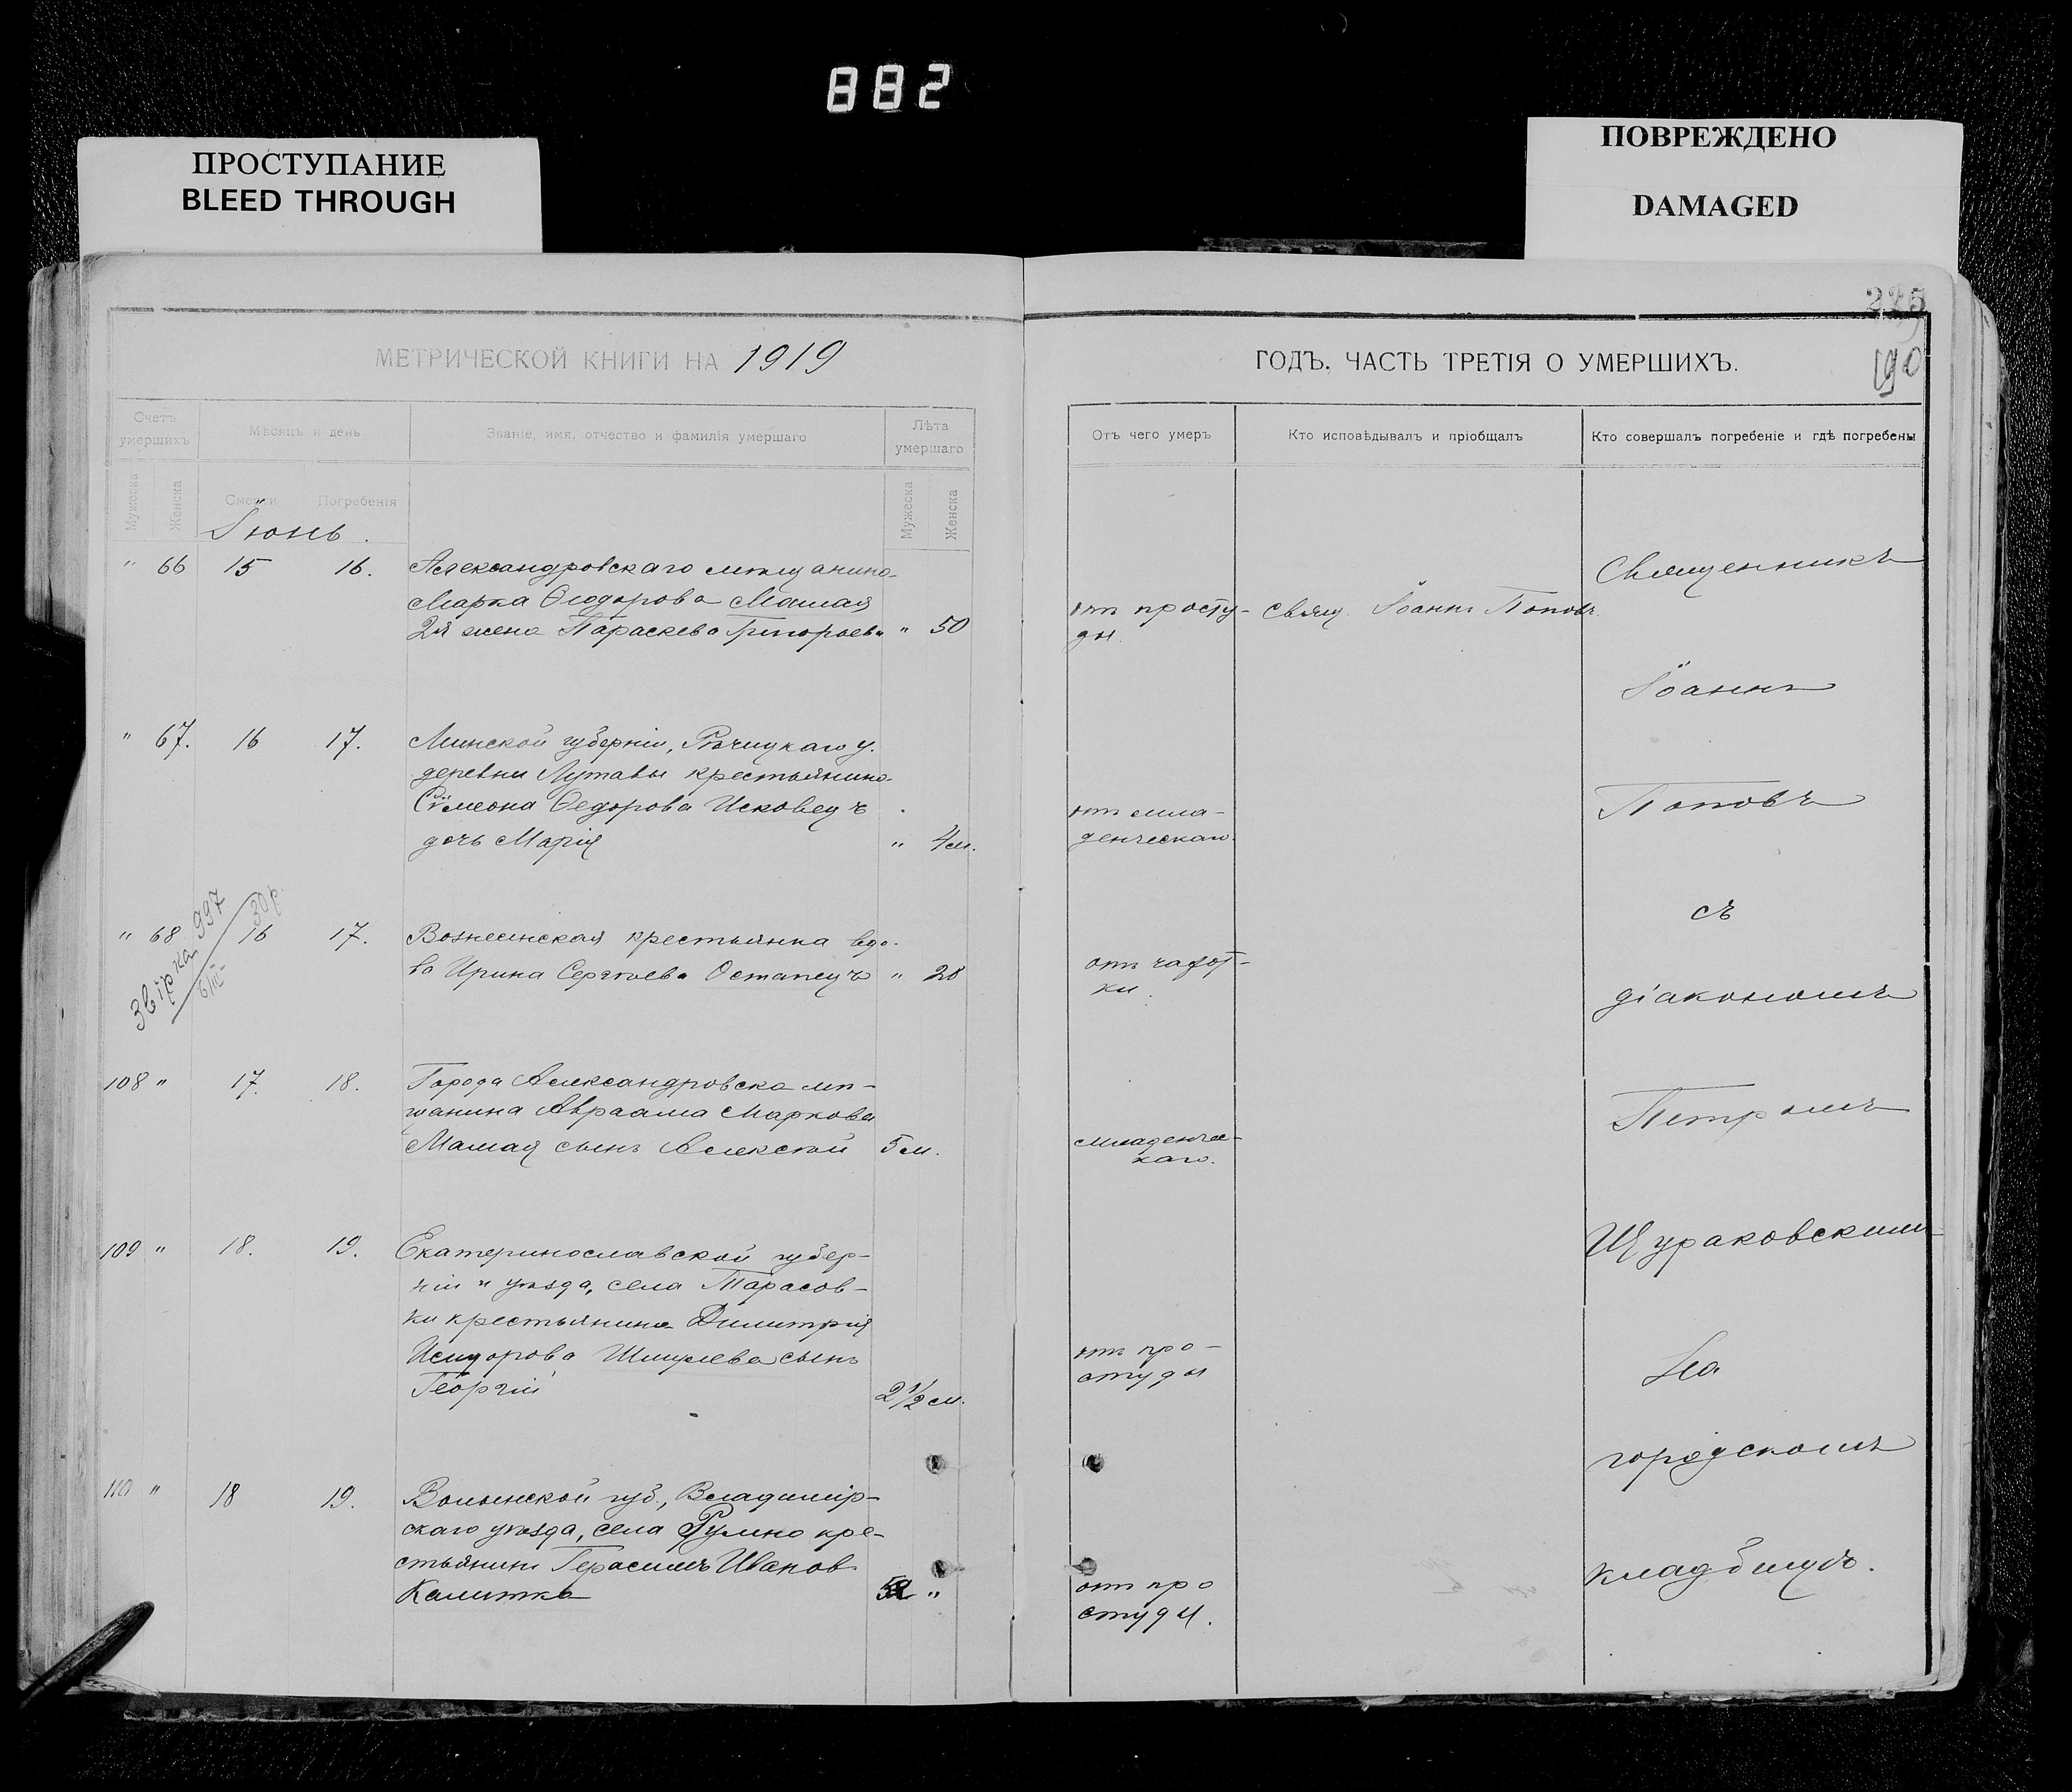 882
ПРОСТУПАНИЕ
BLEED THROUGH
ПОВРЕЖДЕНО
DAMAGED
190
МЕТРИЧЕСКОЙ КНИГИ НА 1919
ГОДЪ, ЧАСТЬ ТРЕТІЯ О УМЕРШИХЪ.
Счетъ умершихъ
Мѣсяцъ и день
Званіе, имя, отчество и фамилія умершаго
Лѣта умершаго
Отъ чего умеръ
Кто исповѣдывалъ и пріобщалъ
Кто совершалъ погребеніе и гдѣ погребены
Мужеска
Женска
Смерти
Погребенія
Мужеска
Женска
Іюнь.
" 66 15 16. Александровскаго мѣщанина
Марка Ѳеодорова Мамая
2я жена Параскева Григорьева " 50
отъ просту-
ды.
Свящ. Іоаннъ Поповъ.
" 67. 16 17. Минской губерніи, Рѣчицкаго у.
деревни Лутавы крестьянина
Симеона Ѳедорова Исковецъ
дочь Марія " 4 м.
отъ мла-
денческаго.
Звірка 997
30 р.
6/III
" 68 16 17. Вознесенская крестьянка вдо-
ва Ирина Сергѣева Остапецъ " 28
отъ чахот-
ки.
108 " 17. 18. Города Александровска мѣ-
щанина Авраама Маркова
Мамая сынъ Алексѣй 5 м.
младенчес-
каго.
109 " 18. 19. Екатеринославской губер-
ніи и уѣзда, села Тарасов-
ки крестьянина Димитрія
Исидорова Шмулева сынъ
Георгій 2 1/2 м.
отъ про-
студы
110 " 18 19. Волынской губ., Владимір-
скаго уѣзда, села Румно кре-
стьянинъ Герасимъ Иванов
Калитка 52 "
отъ про
студы.
Священникъ
Іоаннъ
Поповъ
съ
діакономъ
Петромъ
Щураковскимъ
На
городскомъ
кладбищѣ.